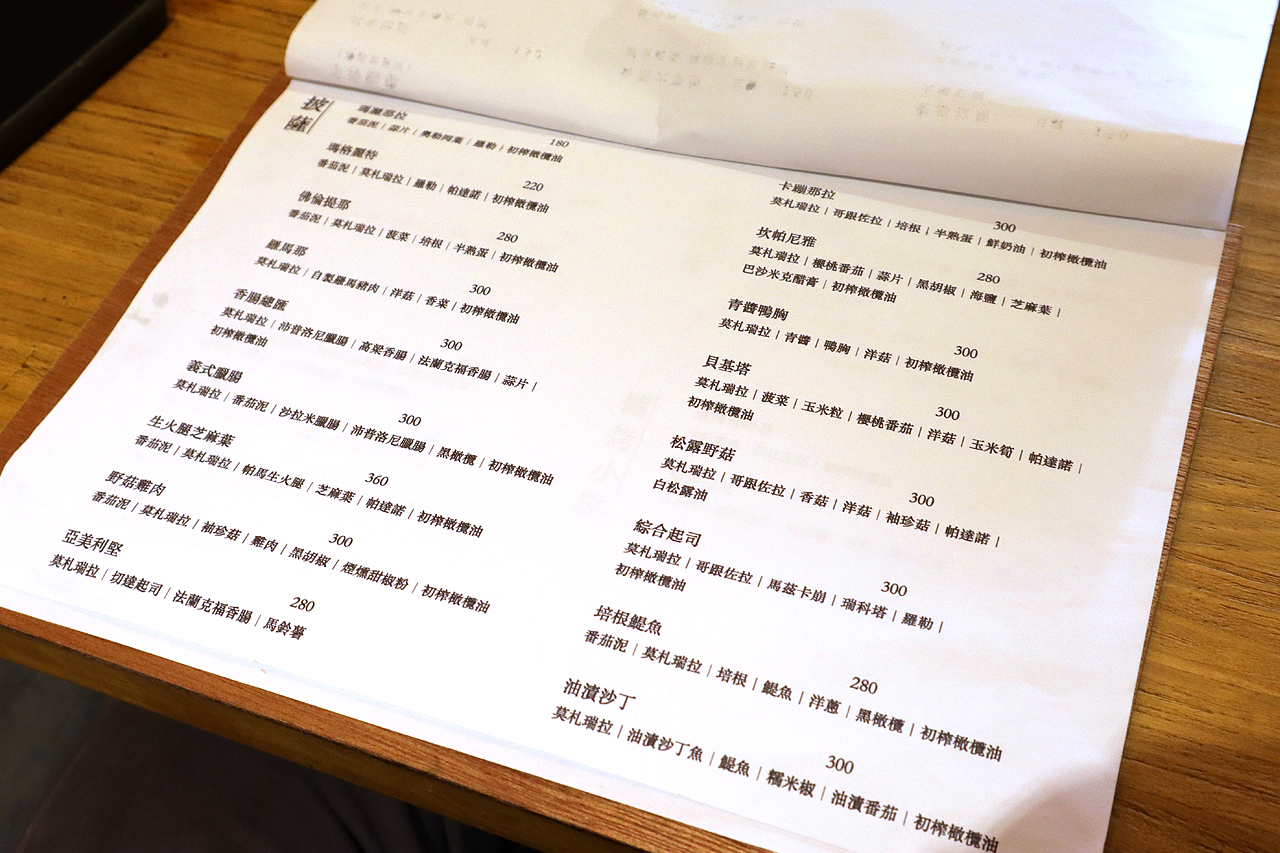 披薩
瑪麗那拉 180
番茄泥 | 蒜片 | 奧勒岡葉 | 羅勒 | 初榨橄欖油
瑪格麗特 220
番茄泥 | 莫札瑞拉 | 羅勒 | 帕達諾 | 初榨橄欖油
佛倫提那 280
番茄泥 | 莫札瑞拉 | 菠菜 | 培根 | 半熟蛋 | 初榨橄欖油
羅馬那 300
莫札瑞拉 | 自製羅馬豬肉 | 洋菇 | 香菜 | 初榨橄欖油
香腸總匯 300
莫札瑞拉 | 沛普洛尼臘腸 | 高粱香腸 | 法蘭克福香腸 | 蒜片 |
初榨橄欖油
義式臘腸 300
莫札瑞拉 | 番茄泥 | 沙拉米臘腸 | 沛普洛尼臘腸 | 黑橄欖 | 初榨橄欖油
生火腿芝麻葉 360
番茄泥 | 莫札瑞拉 | 帕馬生火腿 | 芝麻葉 | 帕達諾 | 初榨橄欖油
野菇雞肉 300
番茄泥 | 莫札瑞拉 | 袖珍菇 | 雞肉 | 黑胡椒 | 煙燻甜椒粉 | 初榨橄欖油
亞美利堅 280
莫札瑞拉 | 切達起司 | 法蘭克福香腸 | 馬鈴薯
卡蹦那拉 300
莫札瑞拉 | 哥跟佐拉 | 培根 | 半熟蛋 | 鮮奶油 | 初榨橄欖油
坎帕尼雅 280
莫札瑞拉 | 櫻桃番茄 | 蒜片 | 黑胡椒 | 海鹽 | 芝麻葉 |
巴沙米克醋膏 | 初榨橄欖油
青醬鴨胸 300
莫札瑞拉 | 青醬 | 鴨胸 | 洋菇 | 初榨橄欖油
貝基塔 300
莫札瑞拉 | 菠菜 | 玉米粒 | 櫻桃番茄 | 洋菇 | 玉米筍 | 帕達諾 |
初榨橄欖油
松露野菇 300
莫札瑞拉 | 哥跟佐拉 | 香菇 | 洋菇 | 袖珍菇 | 帕達諾 |
白松露油
綜合起司 300
莫札瑞拉 | 哥跟佐拉 | 馬茲卡崩 | 瑞科塔 | 羅勒 |
初榨橄欖油
培根鯷魚 280
番茄泥 | 莫札瑞拉 | 培根 | 鯷魚 | 洋蔥 | 黑橄欖 | 初榨橄欖油
油漬沙丁 300
莫札瑞拉 | 油漬沙丁魚 | 鯷魚 | 糯米椒 | 油漬番茄 | 初榨橄欖油